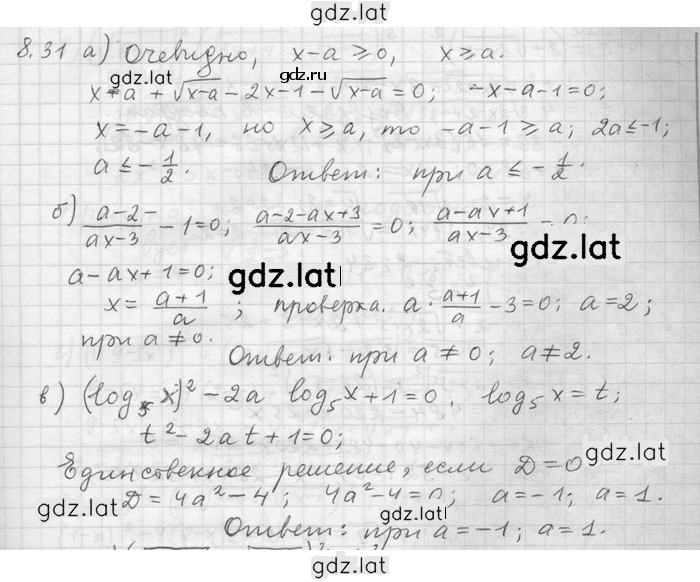 gdz.lat
8.31 а) Очевидно, x-a ≥ 0, x ≥ a.
gdz.lat gdz.ru
x-a + √(x-a) - 2x-1 - √(x-a) = 0; -x-a-1=0;
x=-a-1, но x ≥ a, то -a-1 ≥ a; 2a ≤ -1;
a ≤ -1/2. Ответ: при a ≤ -1/2.
б) (a-2-)/(ax-3) - 1=0; (a-2-ax+3)/(ax-3) = 0; (a-ax+1)/(ax-3) = 0;
gdz.lat
a-ax+1=0; gdz.lat
x = (a+1)/a; проверка. a · (a+1)/a - 3=0; a=2;
при a≠0.
Ответ: при a ≠ 0; a ≠ 2.
в) (log₅ x)² - 2a log₅ x + 1 = 0. log₅ x = t;
t² - 2at + 1 = 0;
Единсвенное решение, если D = 0
gdz.lat
D = 4a² - 4; 4a² - 4 = 0; a = -1; a = 1.
gdz.lat gdz.lat
Ответ: при a = -1; a = 1.
gdz.lat